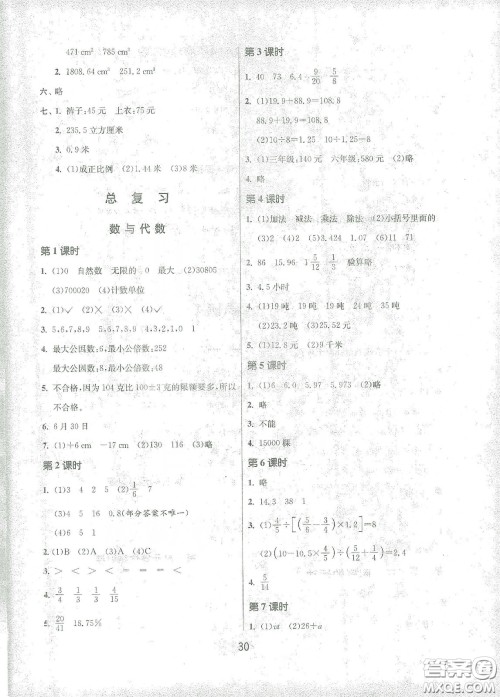 471 cm² 785 cm²
2. 1808.64 cm² 251.2 cm³
六、略
七、1. 裤子:45元 上衣:75元
2. 235.5立方厘米
3. 0.9米
4. (1)成正比例 (2)1.44米 (3)8米
总复习
数与代数
第1课时
1. (1)0 自然数 无限的 0 最大 (2)30805
(3)700020 (4)计数单位
2. (1)√ (2)× (3)× (4)×
3. 5,6,7,8,9 5,6,7,8,9
4. 最大公因数:6,最小公倍数:252
最大公因数:8,最小公倍数:48
5. 不合格,因为104克比100±3克的限额要多,所以
不合格.
6. 6月30日
7. (1)+6 cm −17 cm (2)130 116 (3)略
第2课时
1. (1)3 4 2 5 (2)1/6 7
(3)4 5 16 0.8(部分答案不唯一)
(4)6 5 1
2. (1)B (2)A (3)A (4)C
3. > < > < = <
4. 3/4 1/3 4/15
5. 20/41 18.75%
第3课时
1. 40 73 6.4 9/20 5/8
2. (1)19.9+88.9=108.8
88.9+19.9=108.8
(2)0.1 108 10/11
3. (1)三年级:140元 六年级:580元 (2)略
4. 略
第4课时
1. (1)加法 减法 乘法 除法 (2)小括号里面的
(3)2 (4)4 22 (5)4
2. 86 15.96 1 5/12 1/3 验算略
3. 4.5小时
4. (1)19吨 (2)19吨 (3)19吨
(2)23.9元 (3)25.18元
5. (1)12.8元 (2)9千米
第5课时
1. (1)6 6.0 5.97 (2)略
2. 略
3. 不能
4. 15000棵
第6课时
1. 略
2. 14.3 38 1
3. (1)4/5÷[(5/6−3/4)×1.2]=8
(2)(10−10.5×4/5)÷(5/12+1/4)=2.4
4. 5/14
第7课时
1. (1)vt (2)26+a
30
答案圈
MXQE.COM